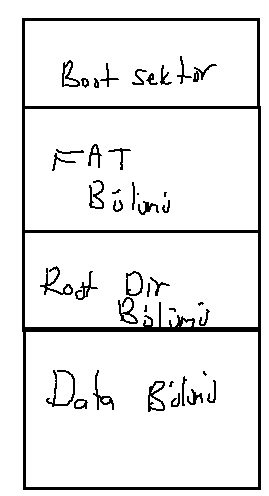 Boot sektör
FAT
Bölümü
Root Dir
Bölümü
Data Bölümü